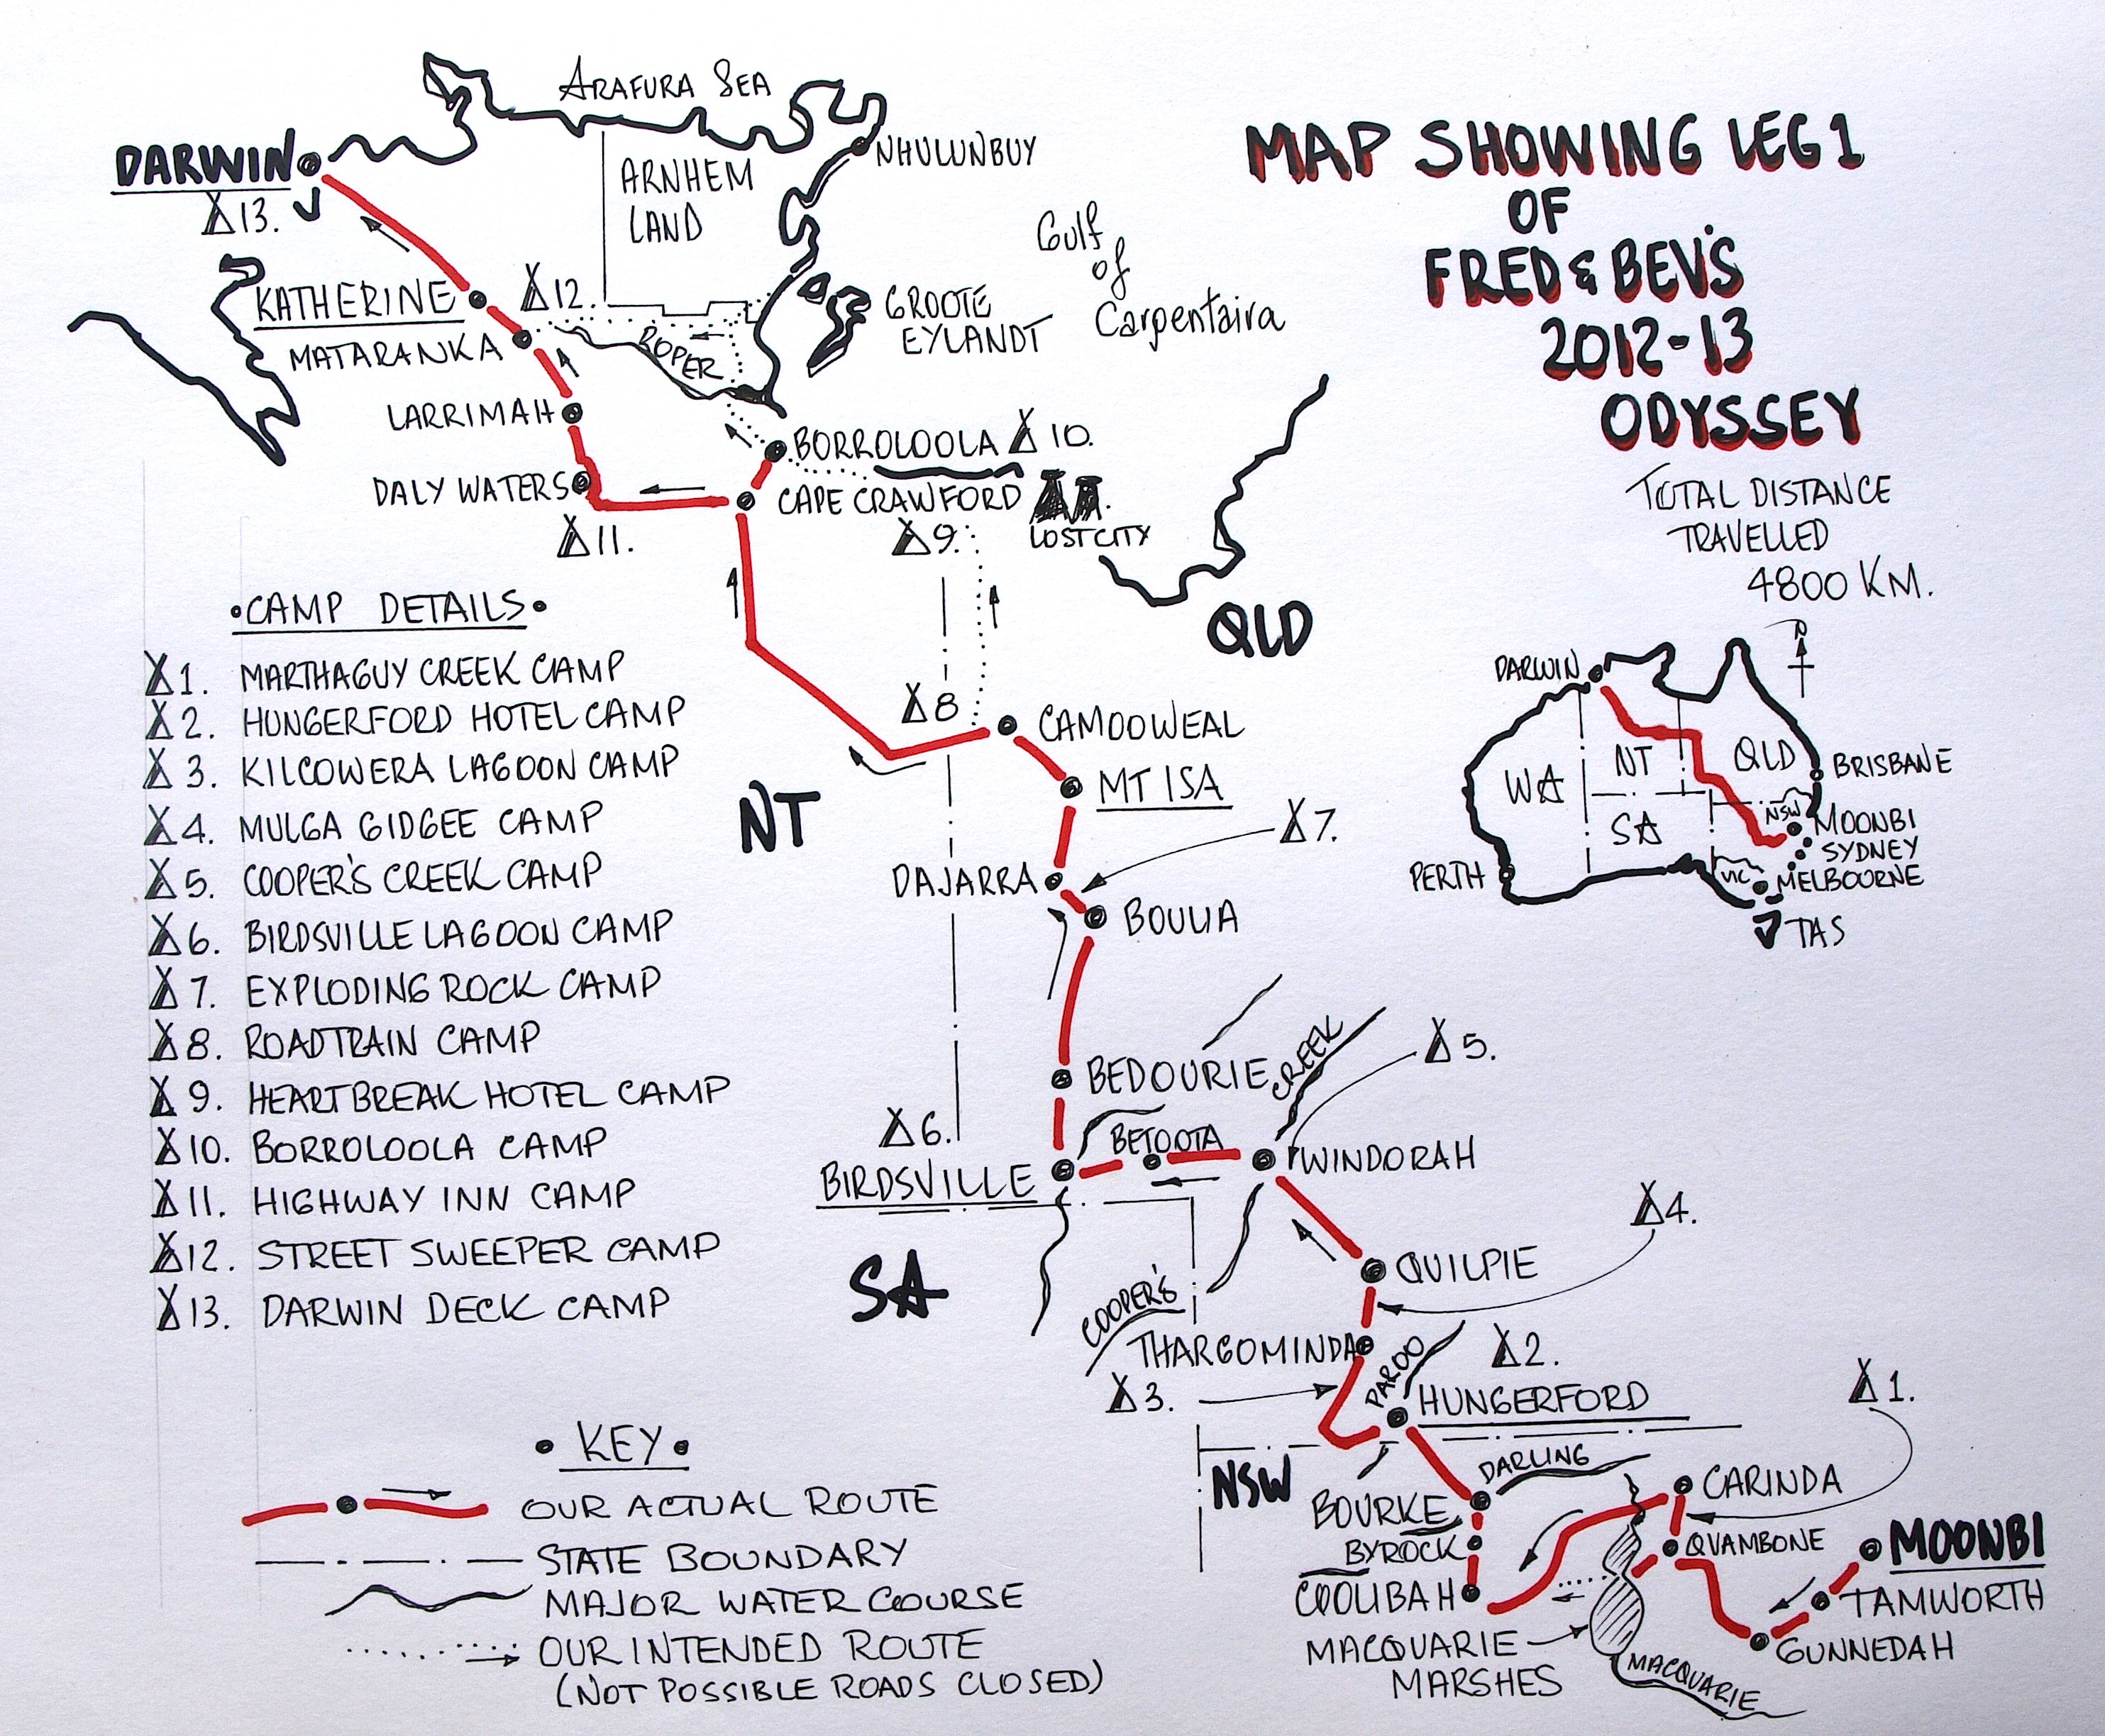 MAP SHOWING LEG 1
OF
FRED & BEV'S
2012-13
ODYSSEY
TOTAL DISTANCE
TRAVELLED
4800 KM.
ARAFURA SEA
DARWIN
13.
ARNHEM
LAND
NHULUNBUY
Gulf
of
Carpentaira
GROOTE
EYLANDT
KATHERINE
12.
MATARANKA
ROPER
LARRIMAH
BORROLOOLA 10.
DALY WATERS
CAPE CRAWFORD
11.
9.
LOST CITY
QLD
8
CAMOOWEAL
MT ISA
NT
7.
DAJARRA
BOULIA
BEDOURIE
CREEK
5.
6.
BETOOTA
BIRDSVILLE
WINDORAH
4.
SA
QUILPIE
COOPER'S
THARGOMINDA
PAROO
2.
3.
HUNGERFORD
1.
NSW
DARLING
CARINDA
BOURKE
BYROCK
QUAMBONE
MOONBI
COOLIBAH
TAMWORTH
MACQUARIE
MARSHES
GUNNEDAH
MACQUARIE
N
DARWIN
WA
NT
QLD
BRISBANE
SA
NSW
MOONBI
SYDNEY
PERTH
VIC
MELBOURNE
TAS
•CAMP DETAILS•
1. MARTHAGUY CREEK CAMP
2. HUNGERFORD HOTEL CAMP
3. KILCOWERA LAGOON CAMP
4. MULGA GIDGEE CAMP
5. COOPER'S CREEK CAMP
6. BIRDSVILLE LAGOON CAMP
7. EXPLODING ROCK CAMP
8. ROADTRAIN CAMP
9. HEARTBREAK HOTEL CAMP
10. BORROLOOLA CAMP
11. HIGHWAY INN CAMP
12. STREET SWEEPER CAMP
13. DARWIN DECK CAMP
• KEY •
OUR ACTUAL ROUTE
STATE BOUNDARY
MAJOR WATER COURSE
OUR INTENDED ROUTE
(NOT POSSIBLE ROADS CLOSED)